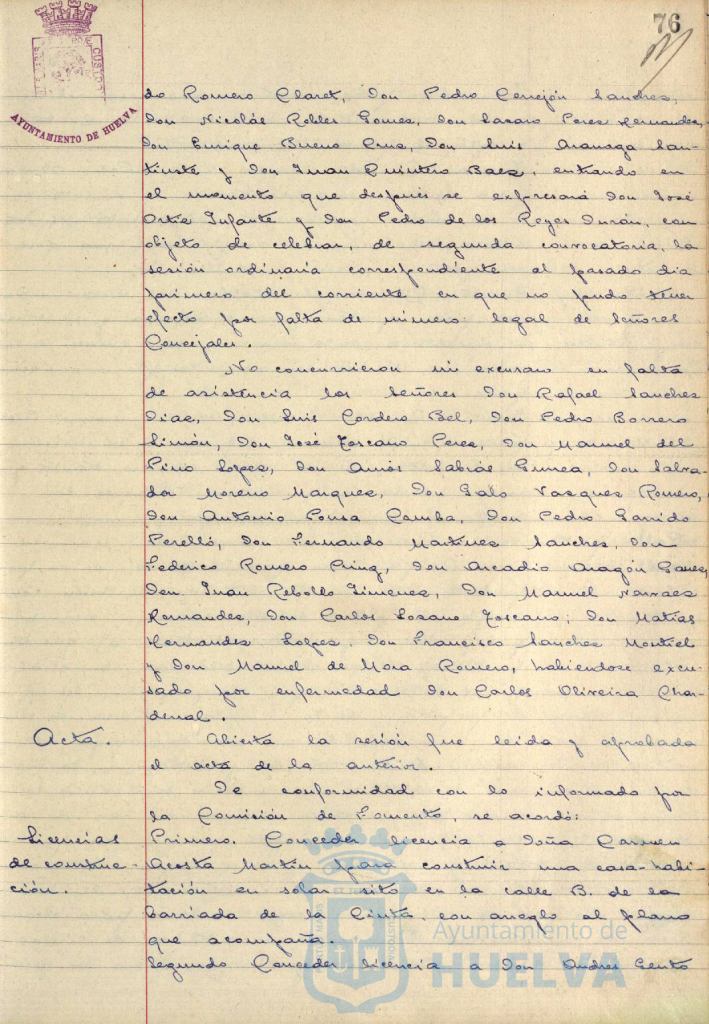 76
AYUNTAMIENTO DE HUELVA
do Romero Claret, Don Pedro Cerrejón Sanchez,
Don Nicolás Robles Gomez, Don Lazaro Perez Hernandez,
Don Enrique Bueno Cruz, Don Luis Aranaga San-
tiuste y Don Juan Quintero Baez, entrando en
el momento que después se expresará Don José
Ortiz Infante y Don Pedro de los Reyes Durán, con
objeto de celebrar, de segunda convocatoria, la
sesión ordinaria correspondiente al pasado dia
primero del corriente en que no pudo tener
efecto por falta de número legal de Señores
Concejales.
No concurrieron ni excusaron su falta
de asistencia los Señores Don Rafael Sanchez
Diaz, Don Luis Cordero Bel, Don Pedro Borrero
Limón, Don José Toscano Perez, Don Manuel del
Pino Lopez, Don Amós Sabrás Gurrea, Don Salva-
dor Moreno Marquez, Don Galo Vazquez Romero,
Don Antonio Pousa Camba, Don Pedro Garrido
Perelló, Don Fernando Martinez Sanchez, Don
Federico Romero Pring, Don Arcadio Aragón
Don Juan Rebollo Jimenez, Don Manuel Narvaez
Hernandez, Don Carlos Lozano Toscano; Don Matías
Hernandez Lopez, Don Francisco Sanchez Montiel
y Don Manuel de Mora Romero, habiendose excu-
sado por enfermedad Don Carlos Oliveira Char-
denal.
Acta.
Abierta la sesión fue leida y aprobada
el acta de la anterior.
De conformidad con lo informado por
la Comisión de Fomento, se acordó:
Licencias
de construc-
ción.
Primero. Conceder licencia a Doña Carmen
Acosta Martín para construir una casa-habi-
tación en solar sito en la calle B. de la
barriada de la Cinta, con arreglo al plano
que acompaña.
Segundo Conceder licencia a Don Andres Gento
Ayuntamiento de
HUELVA